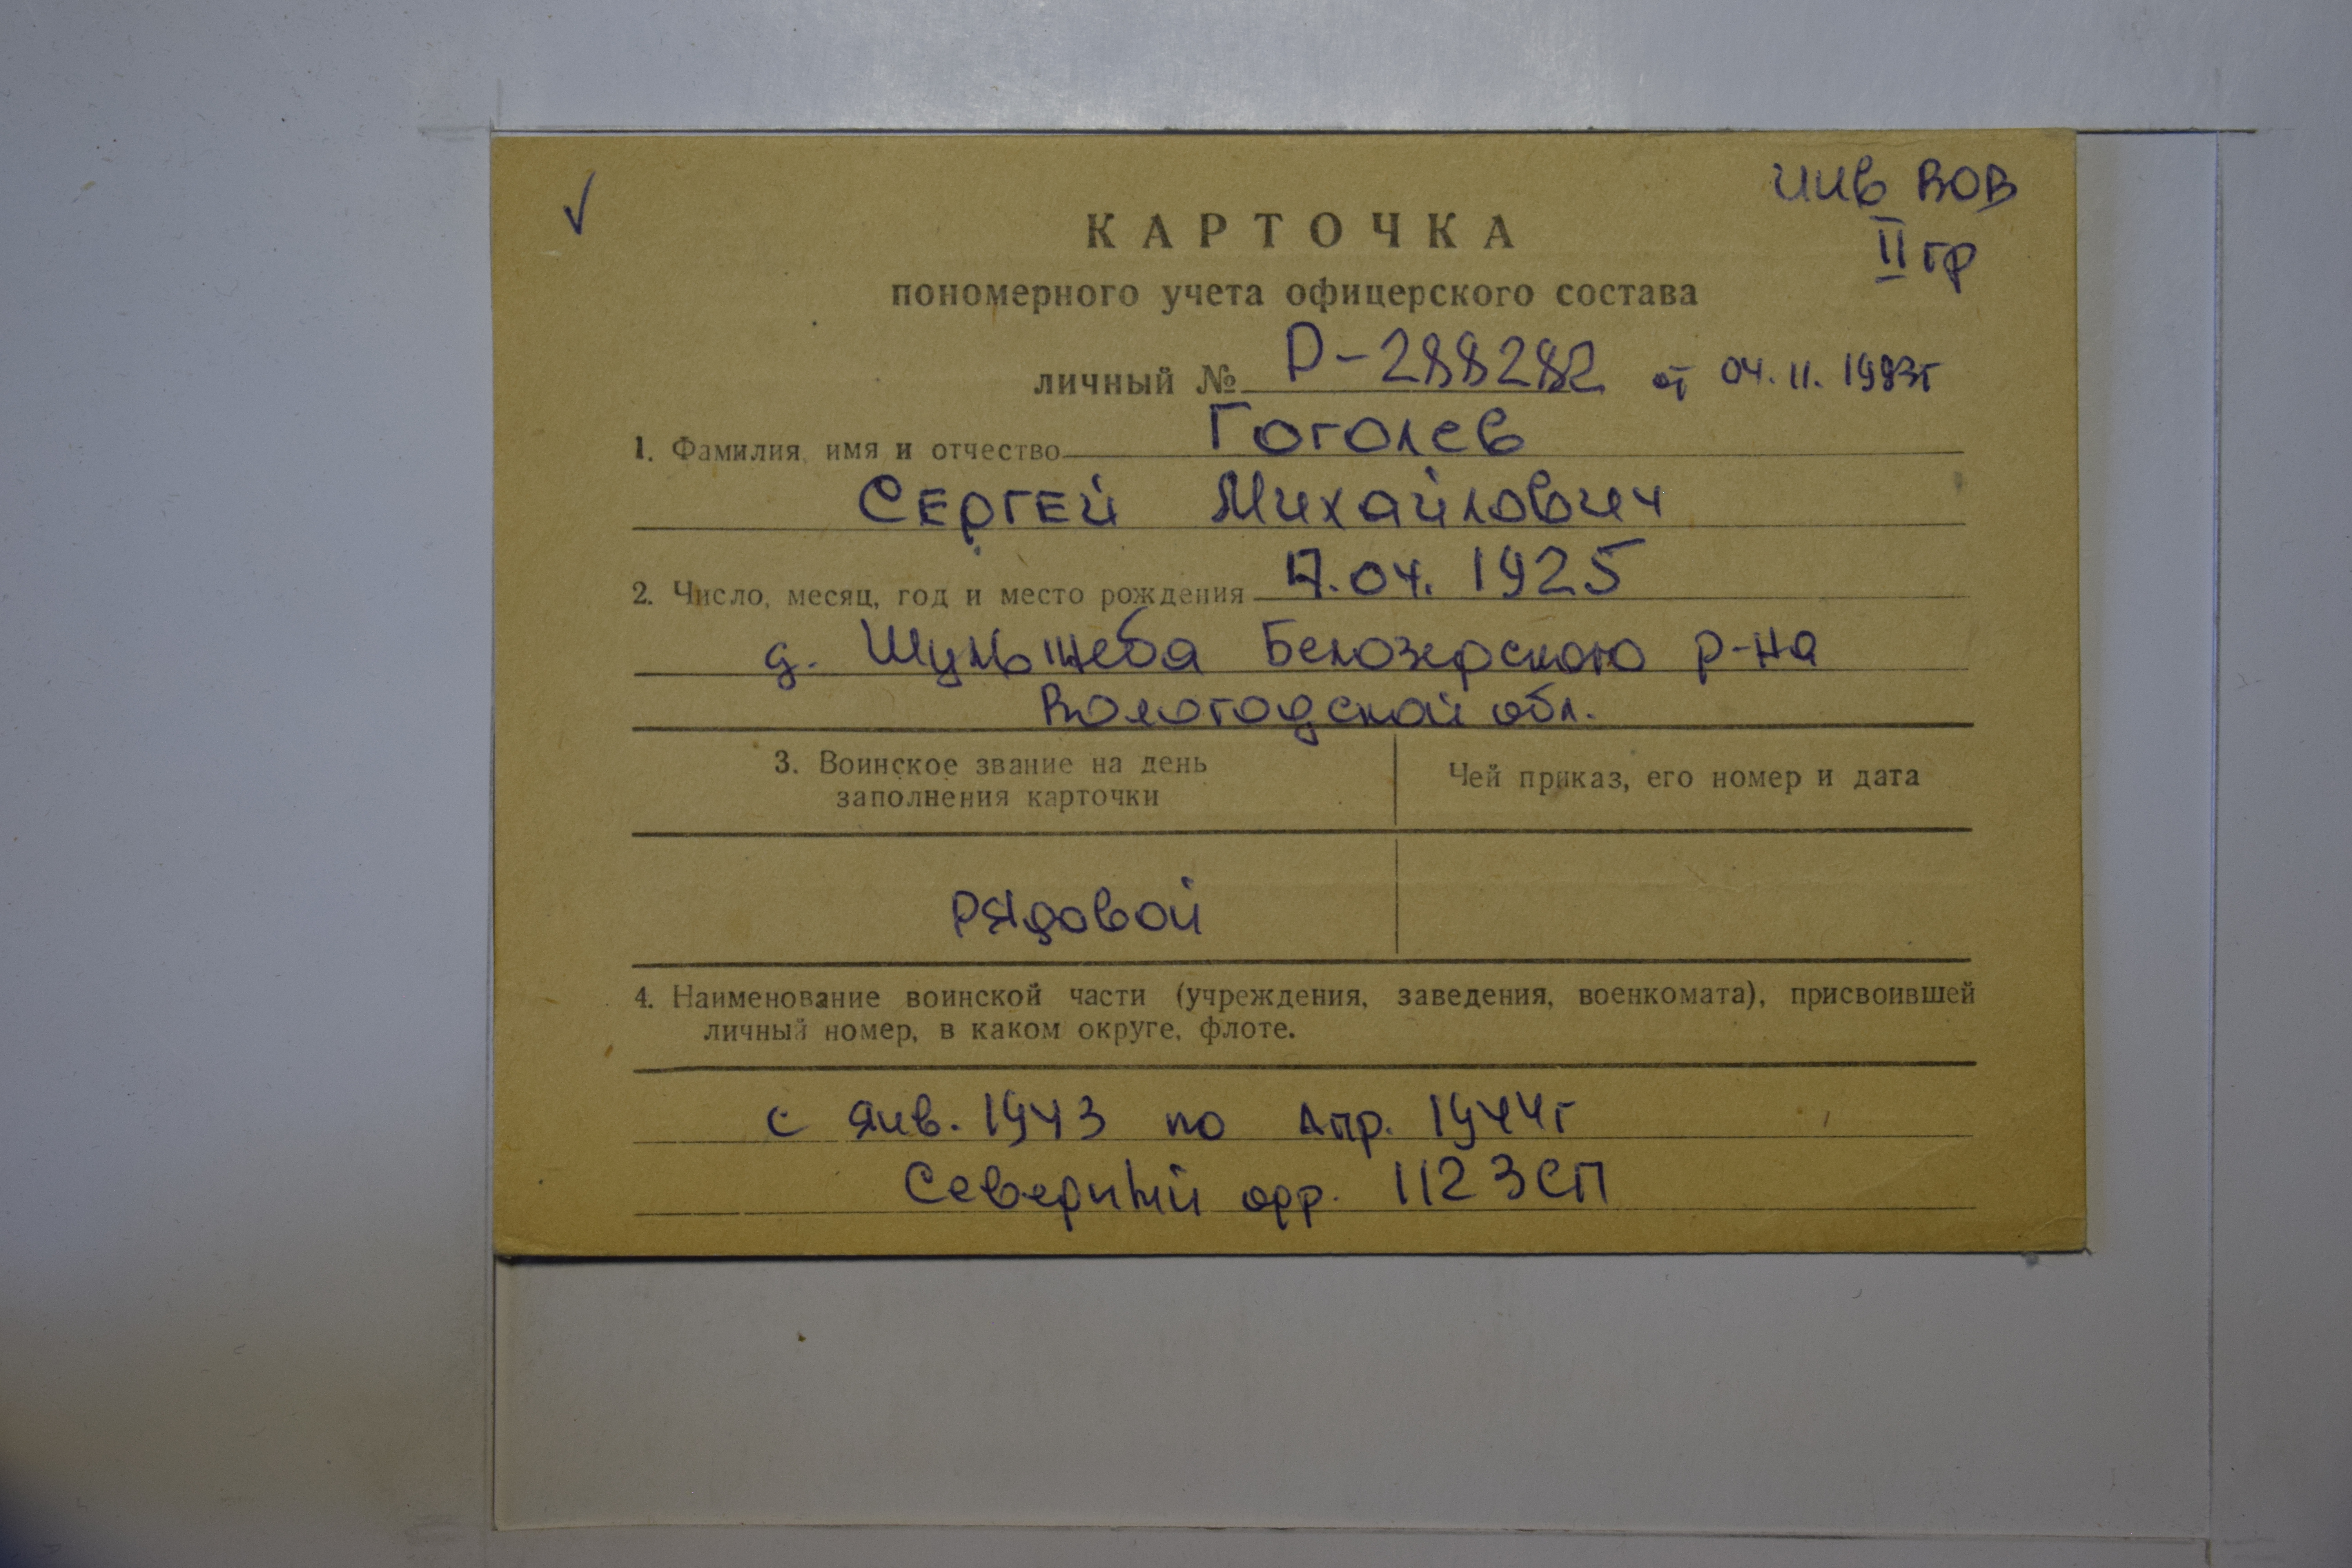 ✓
инв ВОВ
II гр
КАРТОЧКА
пономерного учета офицерского состава
личный № Р-288282 от 04.11.1983г
1. Фамилия, имя и отчество Гоголев
Сергей Михайлович
2. Число, месяц, год и место рождения 17.04.1925
д. Белозерского р-на
Вологодской обл.
3. Воинское звание на день
заполнения карточки
Чей приказ, его номер и дата
Рядовой
4. Наименование воинской части (учреждения, заведения, военкомата), присвоившей
личный номер, в каком округе, флоте.
с янв. 1943 по апр. 1944г
Северный 1123СП